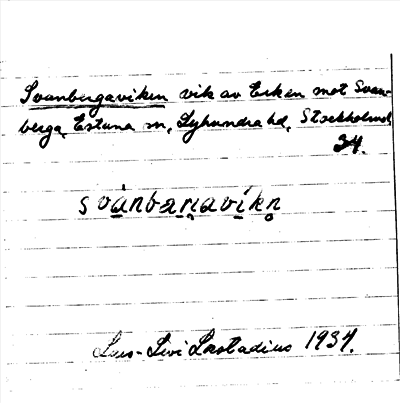 Svanbergaviken vik av Erken mot Svan-
berga, Estuna sn, Lyhundra hd, Stockholms l
34.
svánbaṇavíkn̥
Lars-Levi Læstadius 1934.